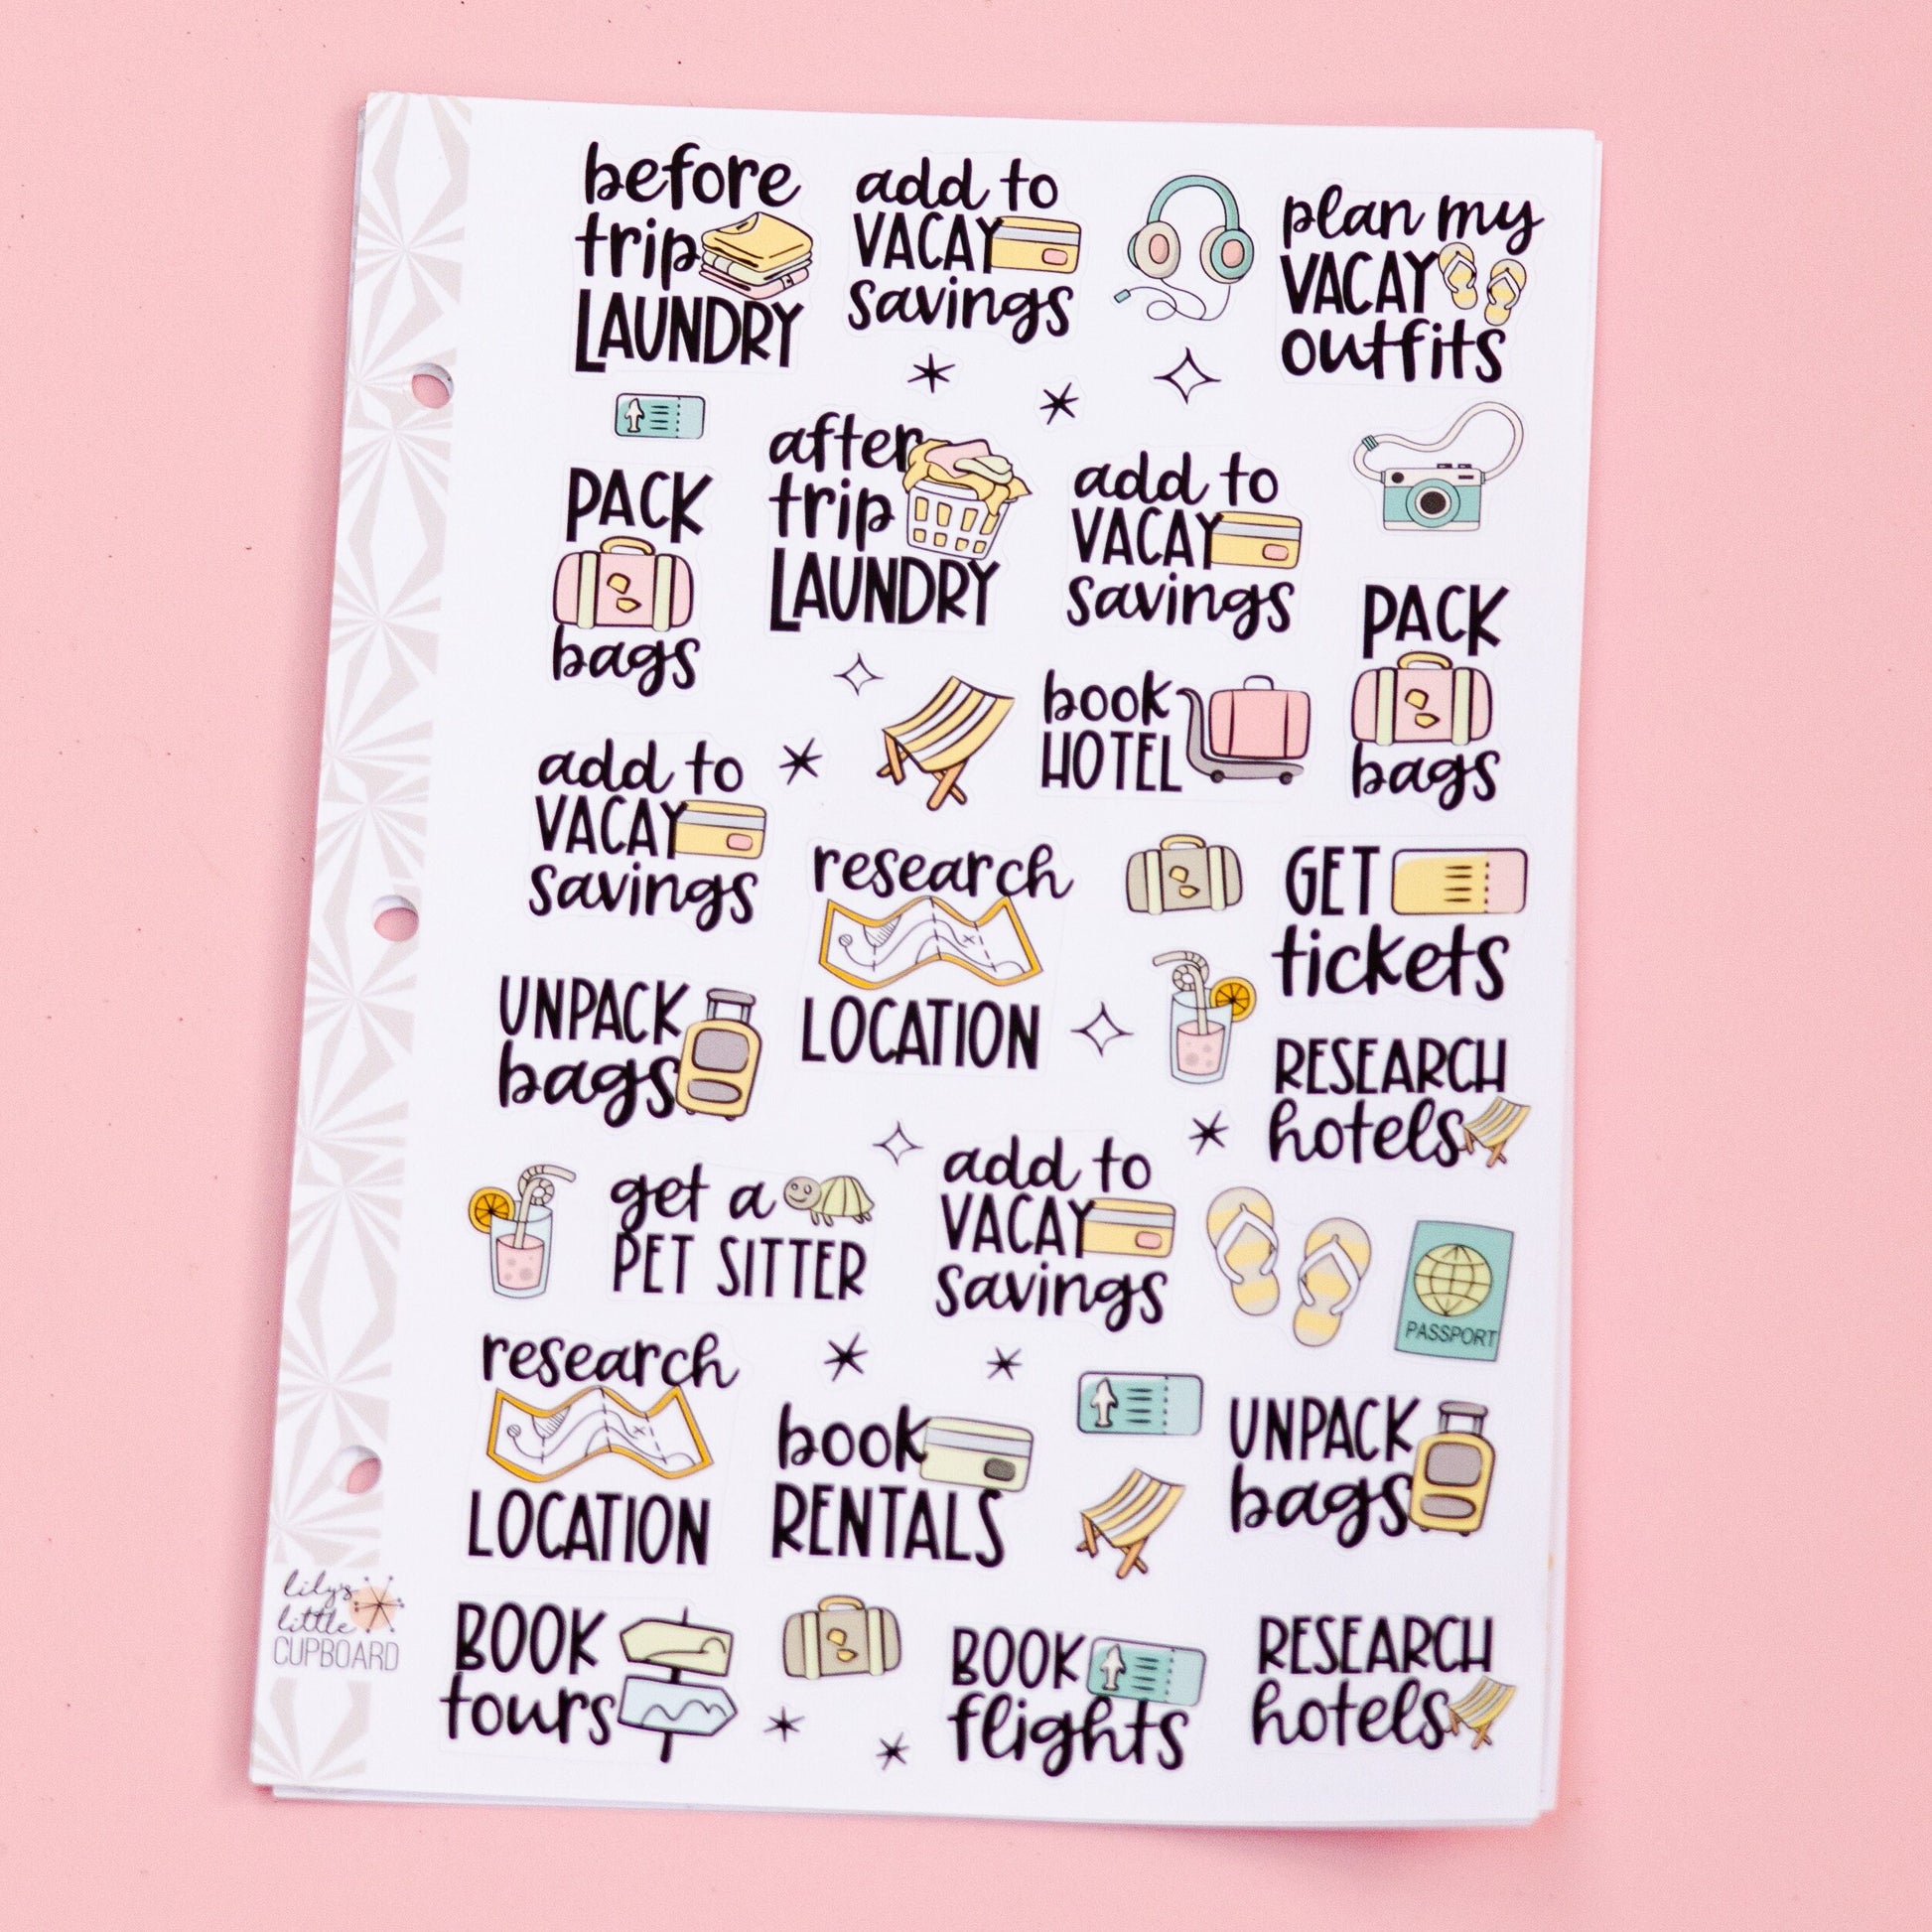 before
trip
LAUNDRY
add to
VACAY
savings
plan my
VACAY
outfits
PACK
bags
after
trip
LAUNDRY
add to
VACAY
savings
PACK
bags
book
HOTEL
add to
VACAY
savings
research
LOCATION
GET
tickets
UNPACK
bags
RESEARCH
hotels
get a
PET SITTER
add to
VACAY
savings
PASSPORT
research
LOCATION
book
RENTALS
UNPACK
bags
BOOK
tours
BOOK
flights
RESEARCH
hotels
lily's
little
CUPBOARD